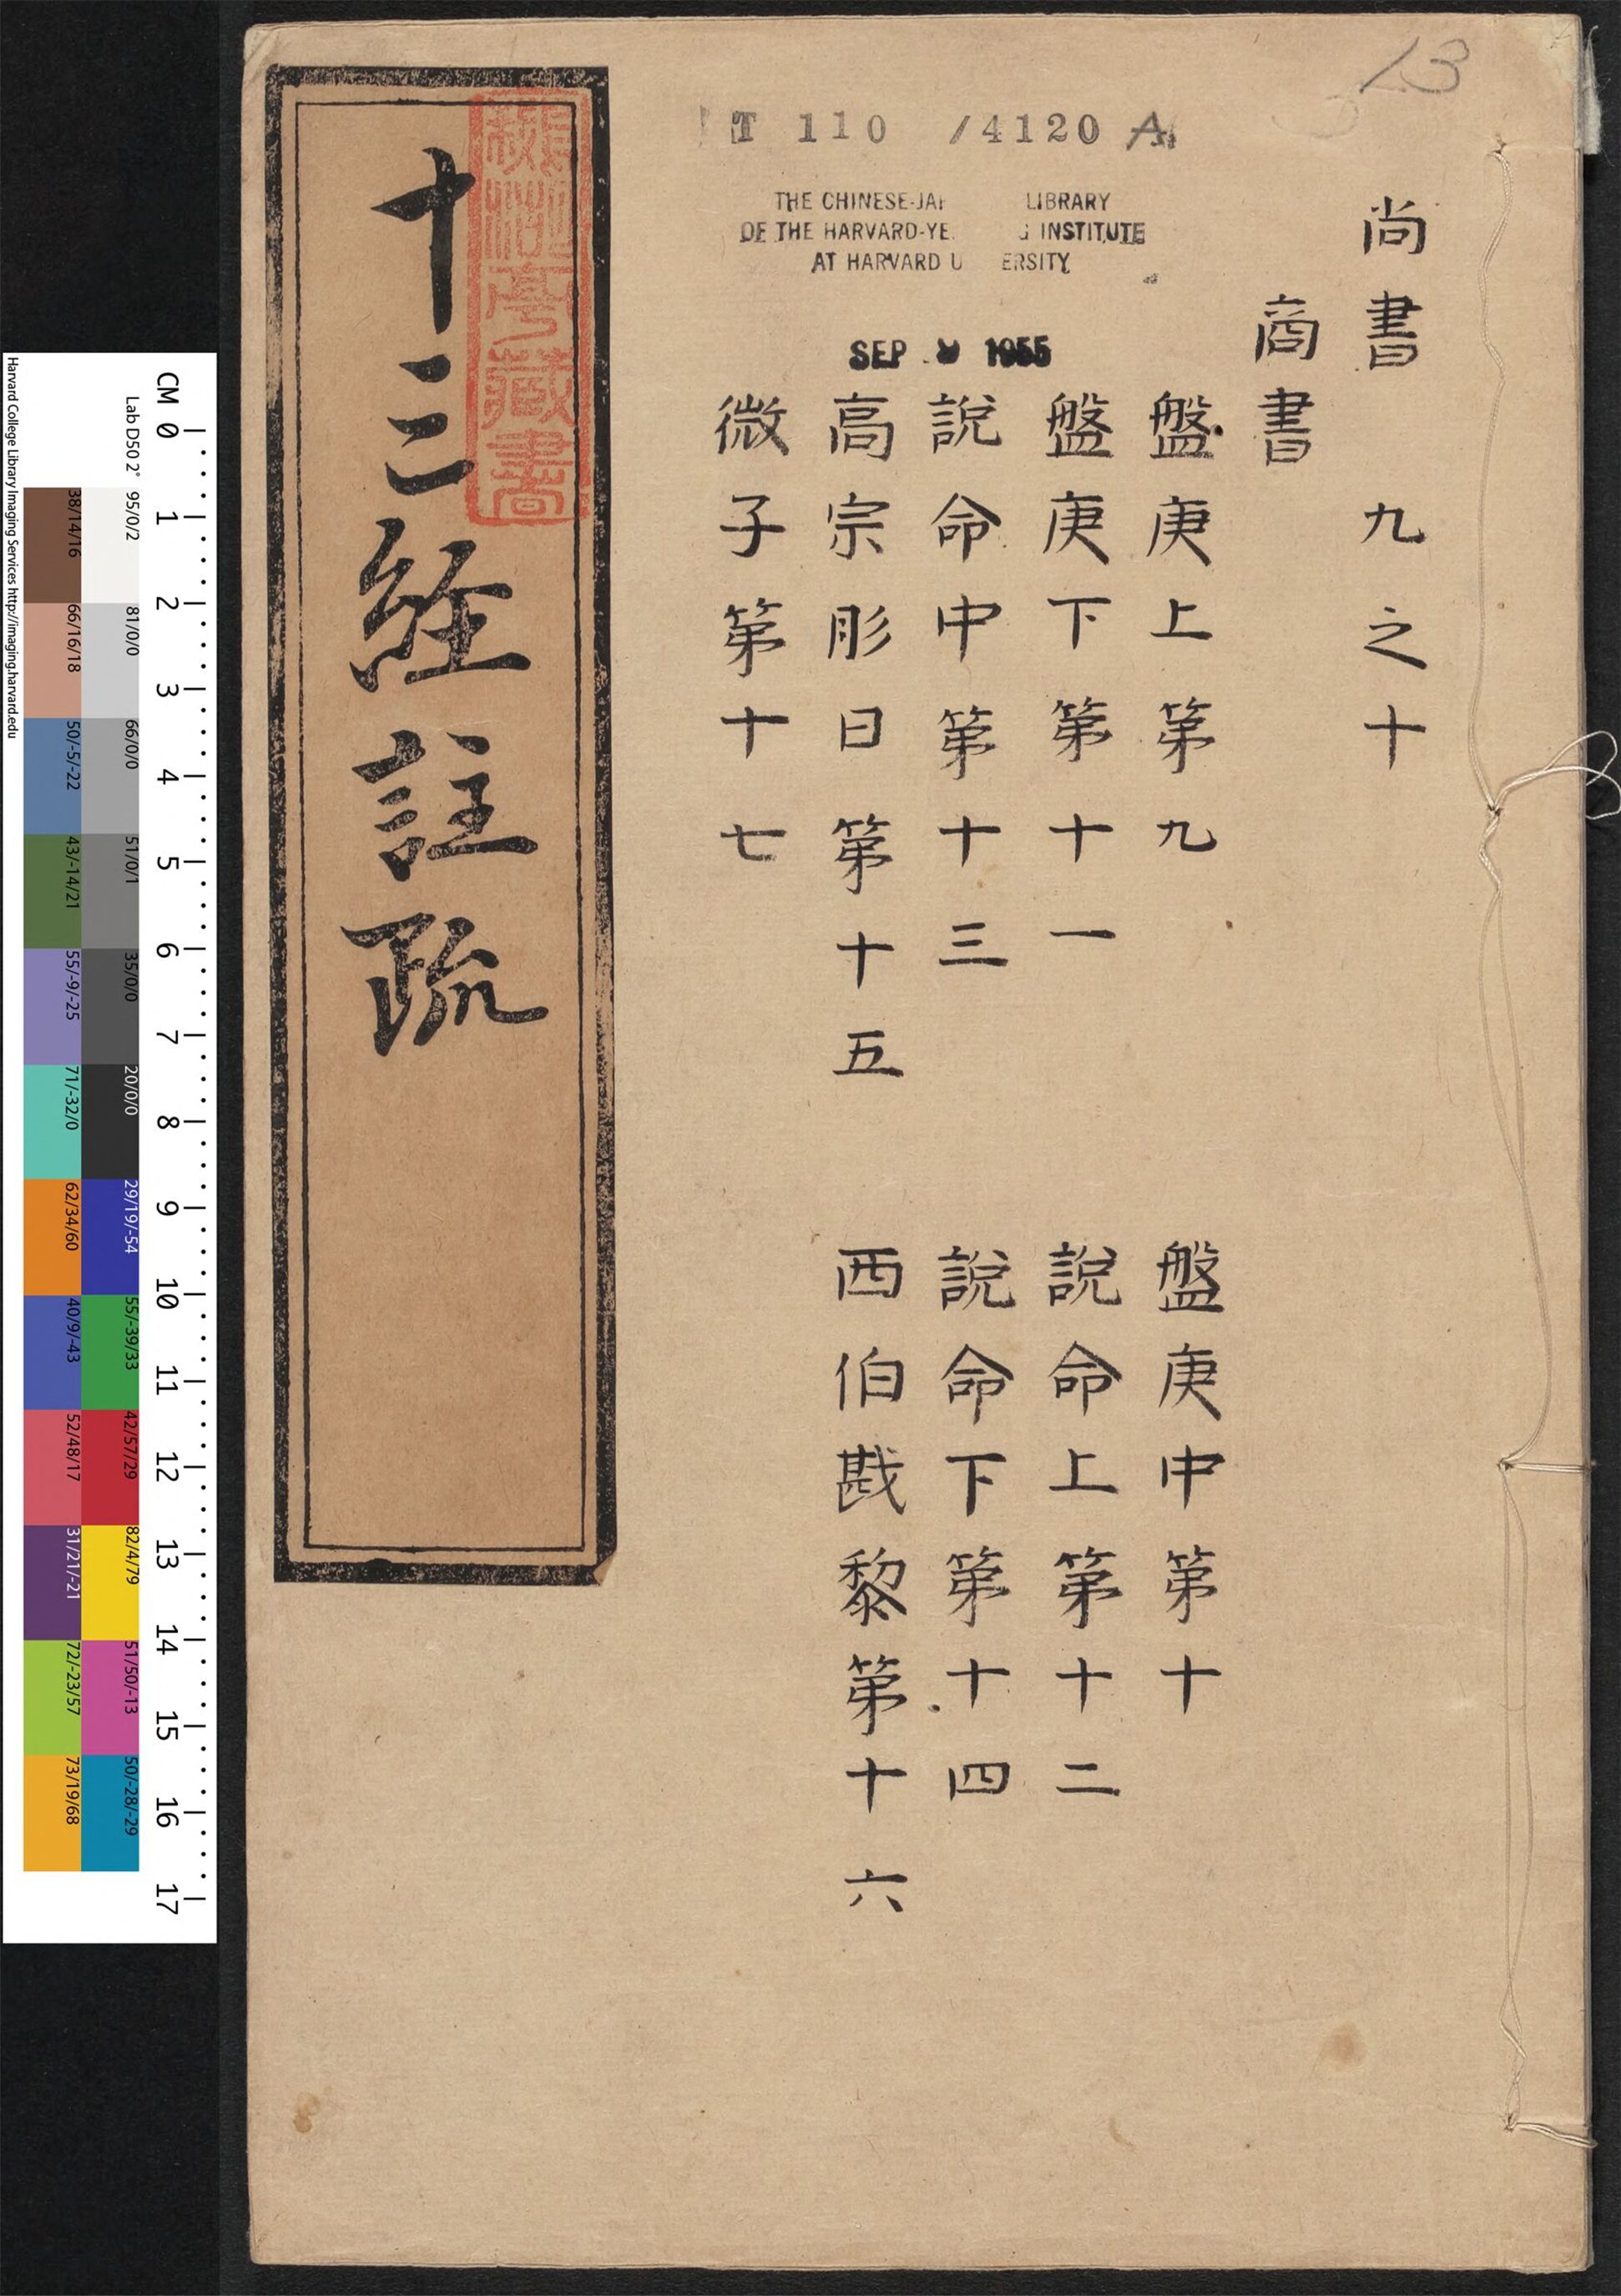 13
T 110 /4120 A
THE CHINESE-JAP LIBRARY
OF THE HARVARD-YE G INSTITUTE
AT HARVARD U ERSITY
SEP 1955
尚書 九之十
商書
盤庚上第九 盤庚中第十
盤庚下第十一 說命上第十二
說命中第十三 說命下第十四
高宗肜日第十五 西伯戡黎第十六
微子第十七
十三經註疏
亭藏書
CM 0 1 2 3 4 5 6 7 8 9 10 11 12 13 14 15 16 17
Lab D50 2° 95/0/2 81/0/0 66/0/0 51/0/1 35/0/0 20/0/0 29/19/-54 55/-39/33 42/57/29 82/4/79 51/50/-13 50/-28/-29
38/14/16 66/16/18 50/-5/-22 43/-14/21 55/-9/-25 71/-32/0 62/34/60 40/9/-43 52/48/17 31/21/-21 72/-23/57 73/19/68
Harvard College Library Imaging Services http://imaging.harvard.edu